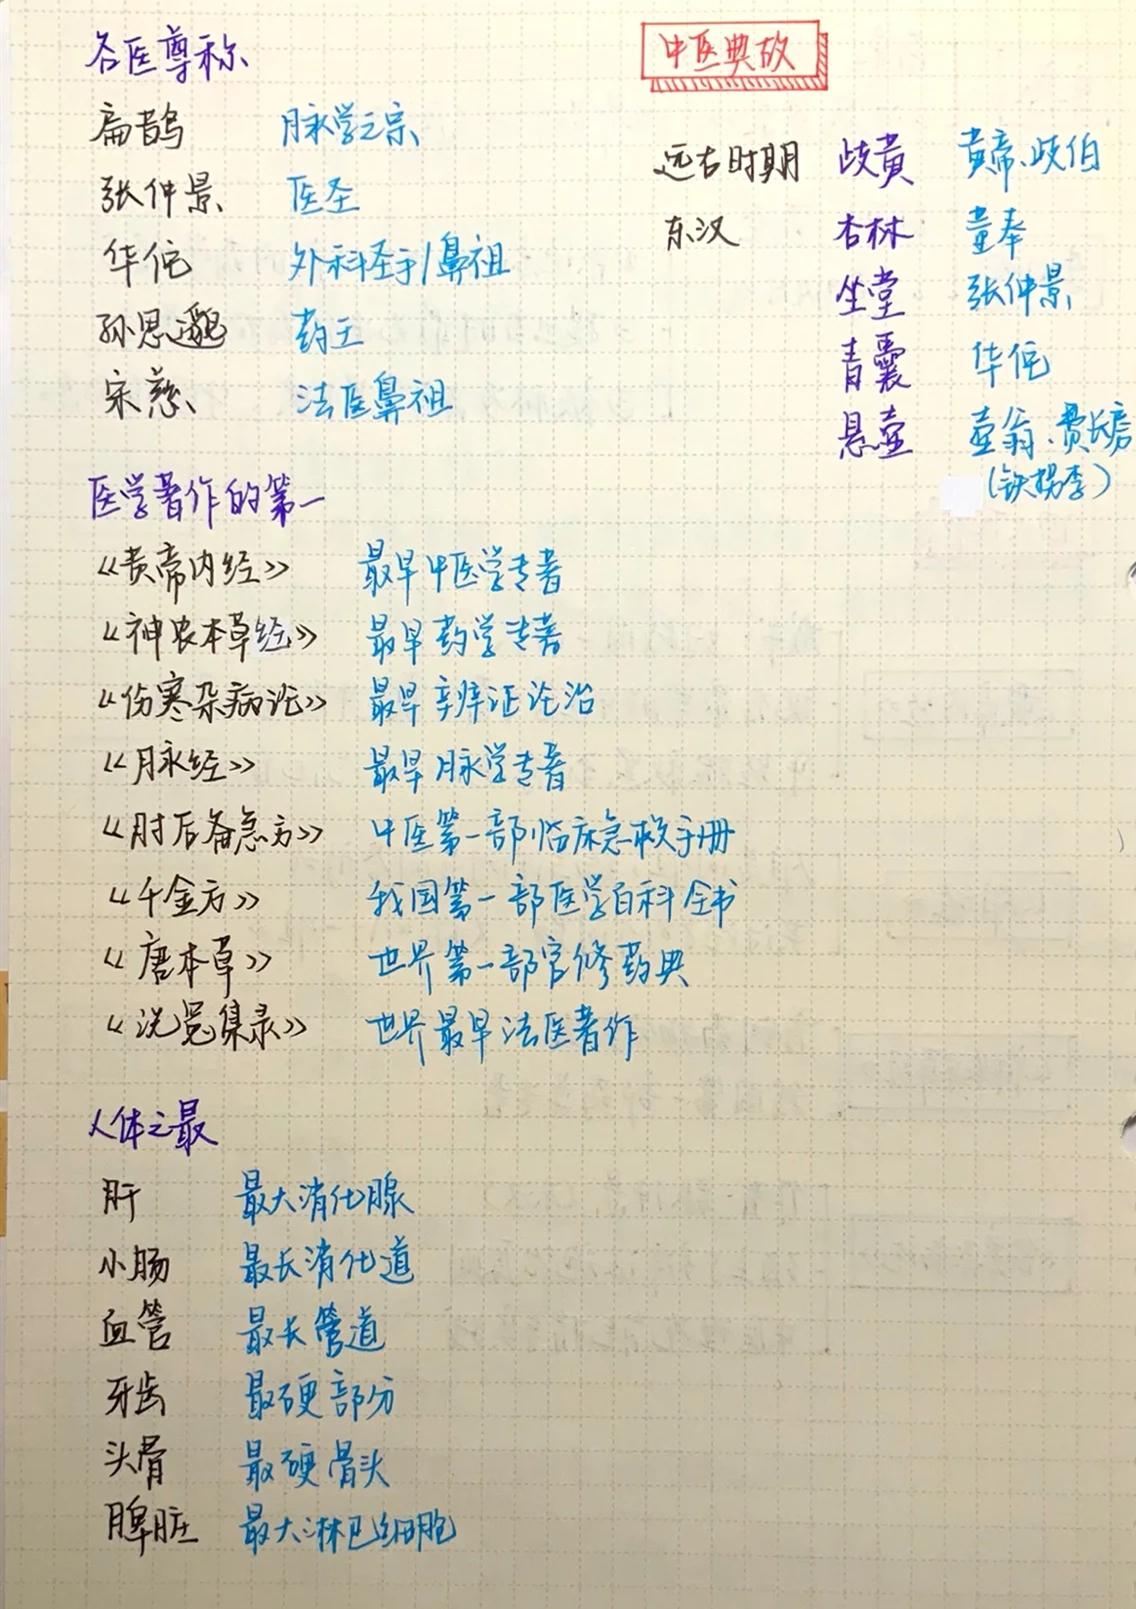 名医尊称
扁鹊 脉学之宗
张仲景 医圣
华佗 外科圣手/鼻祖
孙思邈 药王
宋慈 法医鼻祖
中医典故
远古时期 歧黄 黄帝、歧伯
东汉 杏林 董奉
坐堂 张仲景
青囊 华佗
悬壶 壶翁、费长房
(铁拐李)
医学著作的第一
《黄帝内经》 最早中医学专著
《神农本草经》 最早药学专著
《伤寒杂病论》 最早辨证论治
《脉经》 最早脉学专著
《肘后备急方》 中医第一部临床急救手册
《千金方》 我国第一部医学百科全书
《唐本草》 世界第一部官修药典
《洗冤集录》 世界最早法医著作
人体之最
肝 最大消化腺
小肠 最长消化道
血管 最长管道
牙齿 最硬部分
头骨 最硬骨头
脾脏 最大淋巴细胞